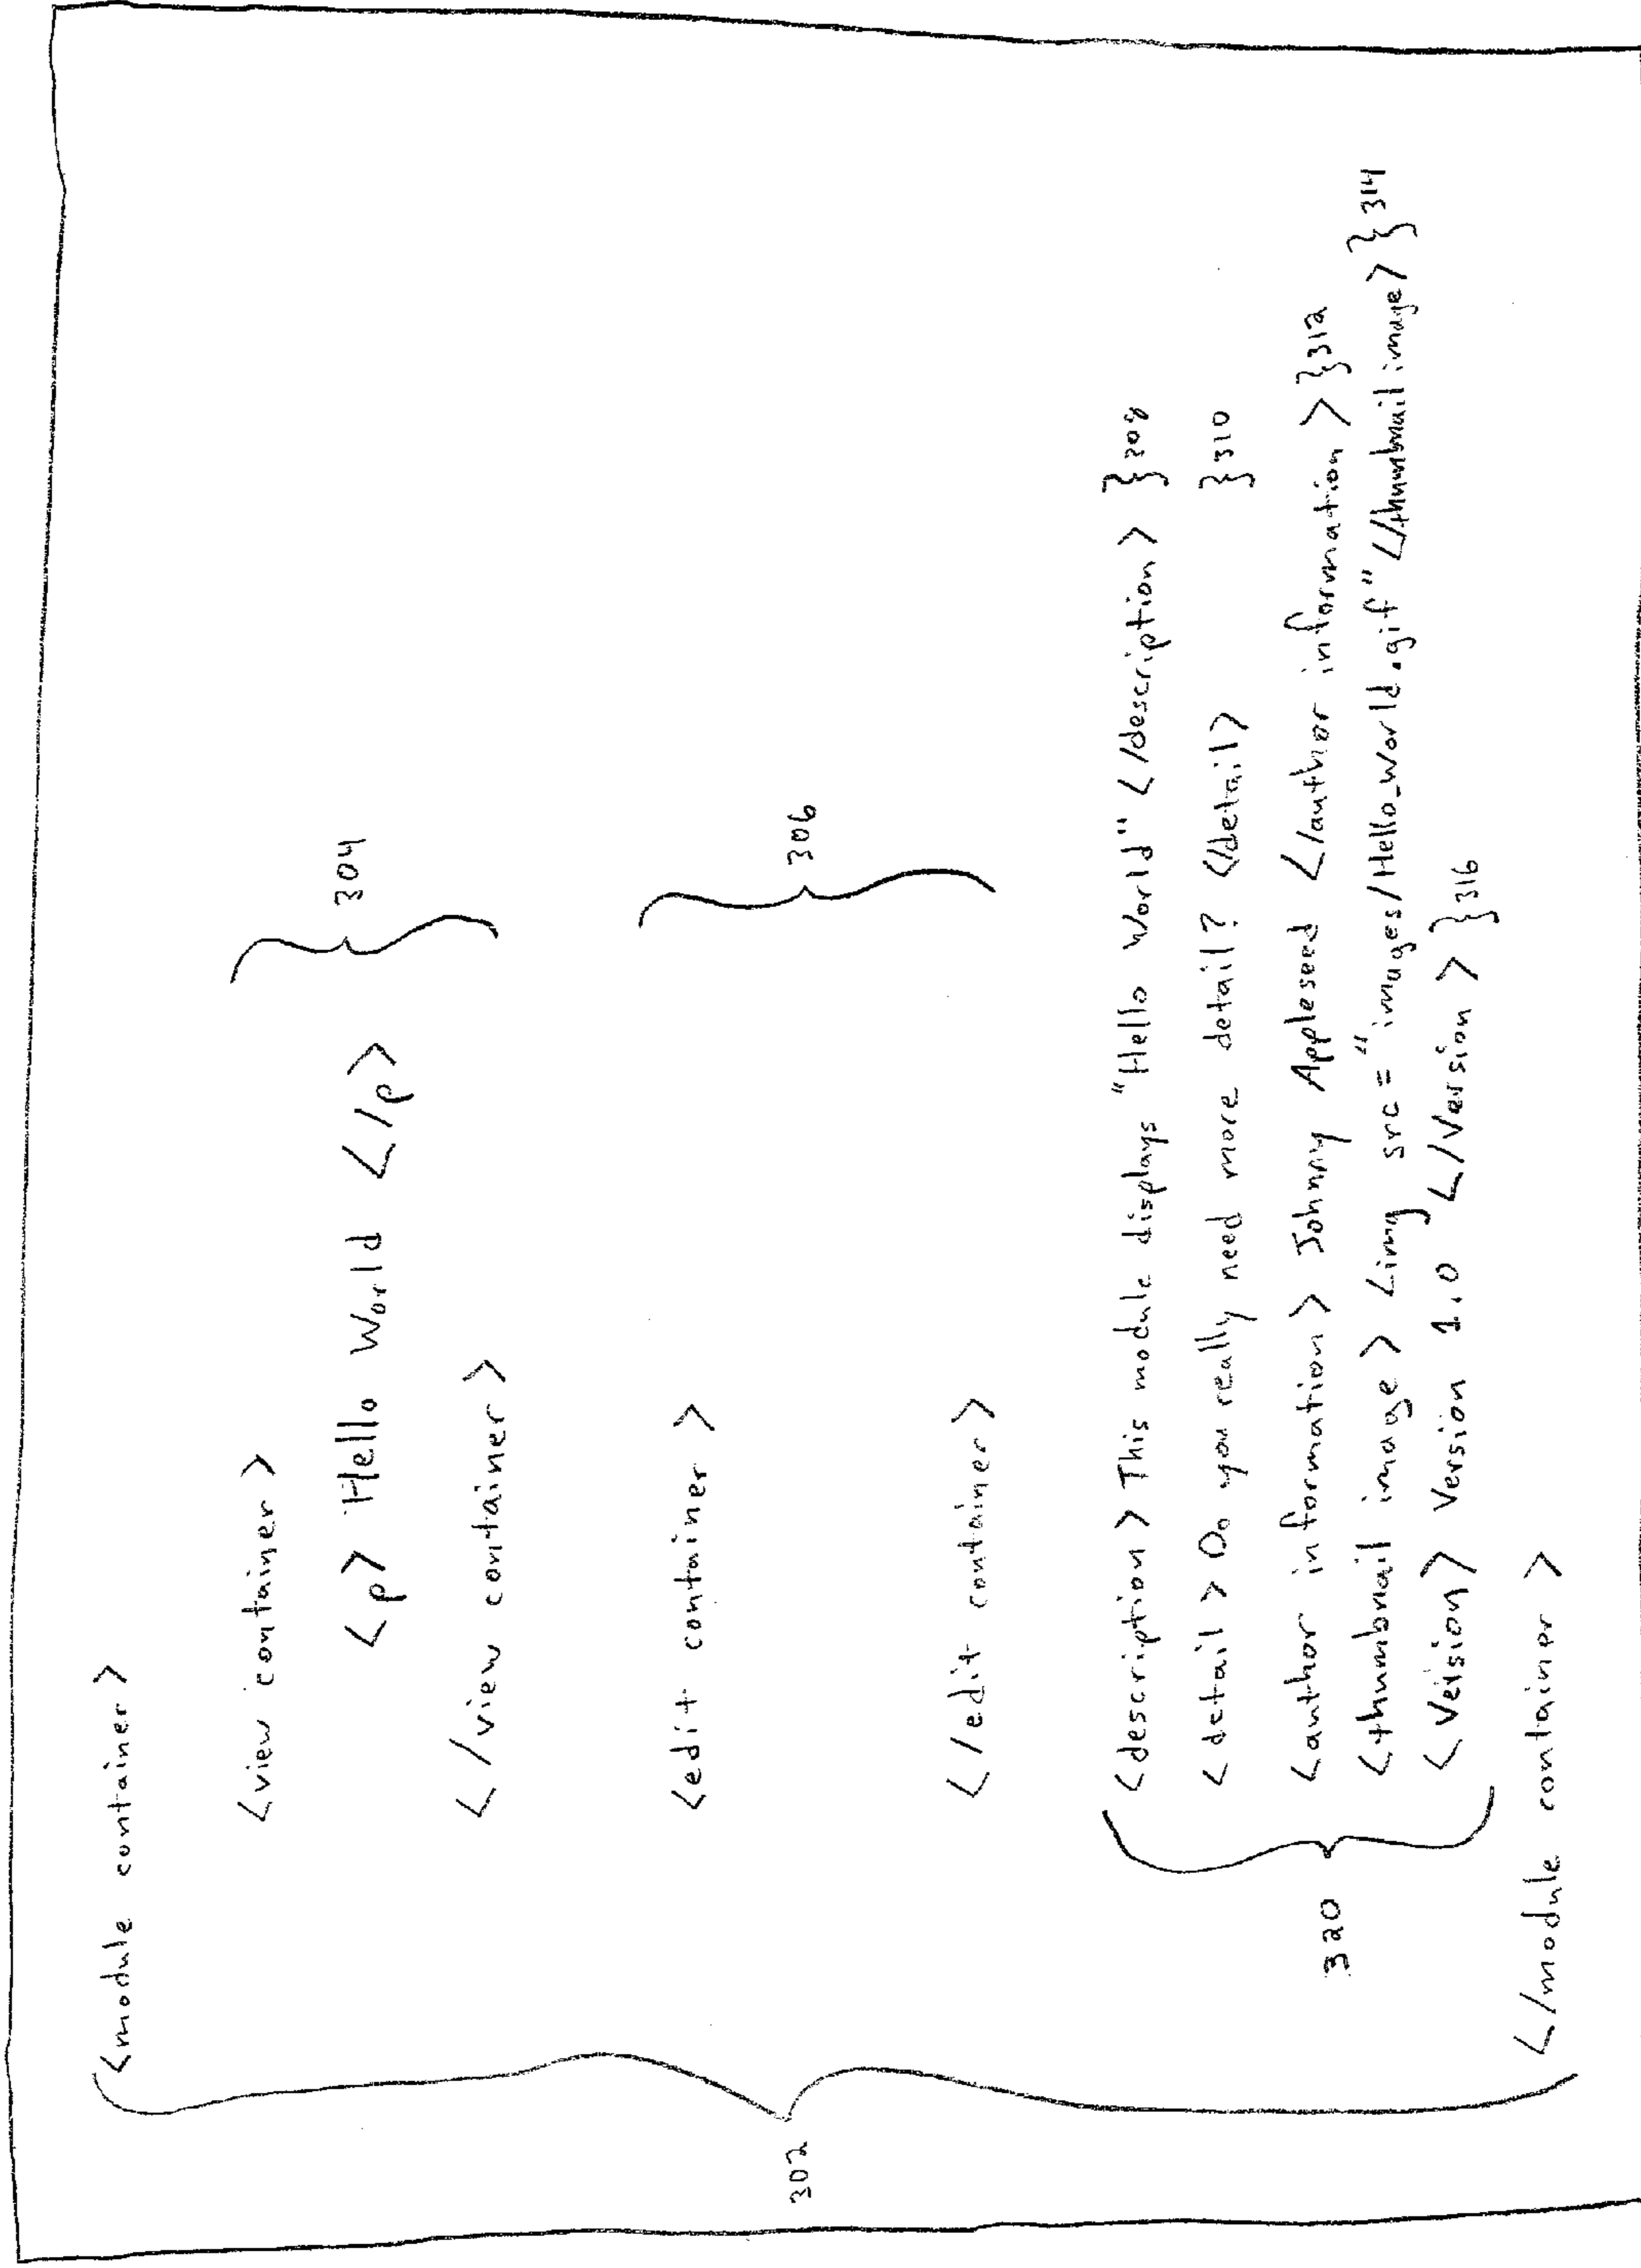 <module container>
<view container>
<p> Hello World </p>
304
</view container>
<edit container>
306
302
</edit container>
<description> This module displays "Hello World" </description> }308
<detail> Do you really need more detail? </detail> }310
<author information> Johnny Appleseed </author information> }312
320
<thumbnail image> <img src="images/Hello_World.gif" </thumbnail image> }314
<Version> Version 1.0 </Version> }316
</module container>